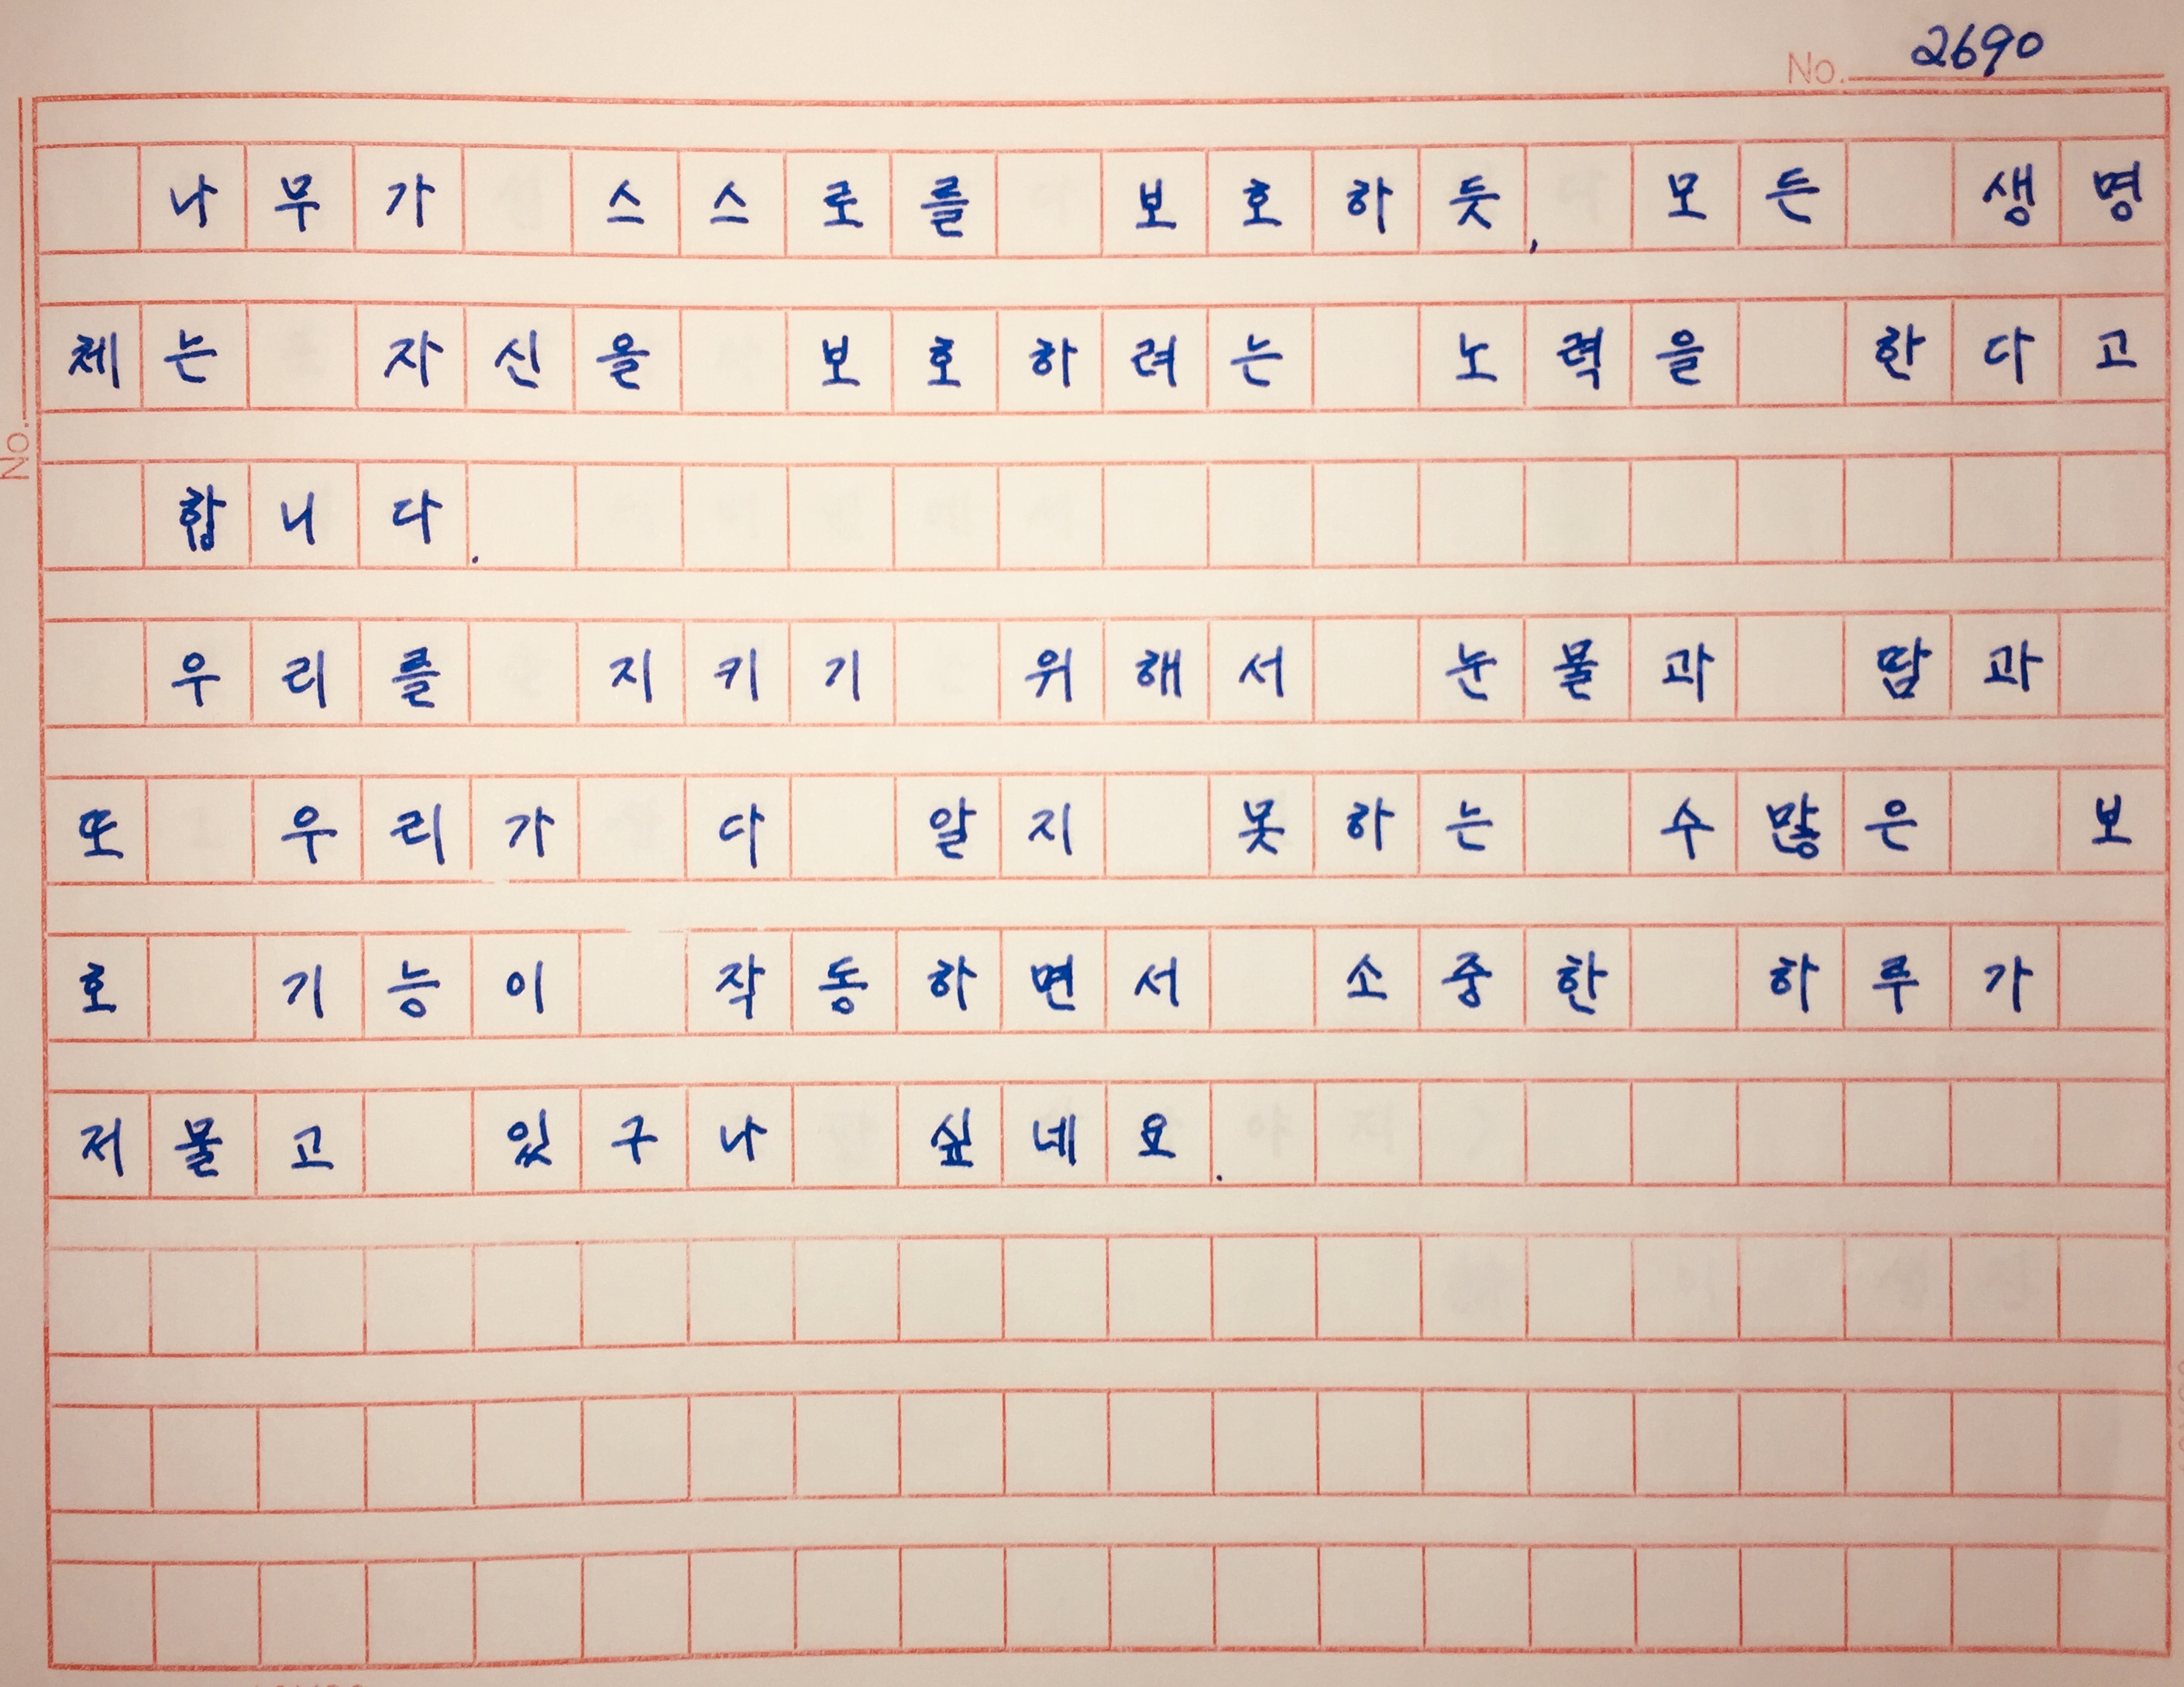 No. 2690
나무가 스스로를 보호하듯, 모든 생명
체는 자신을 보호하려는 노력을 한다고
합니다.
우리를 지키기 위해서 눈물과 땀과
또 우리가 다 알지 못하는 수많은 보
호 기능이 작동하면서 소중한 하루가
저물고 있구나 싶네요.
No.